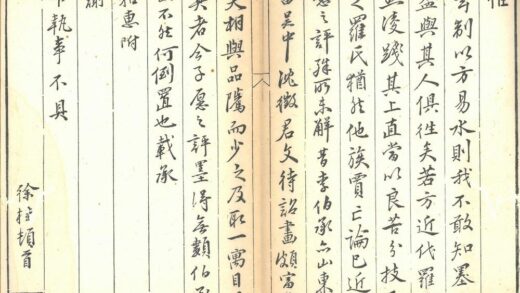 制以方易水則我不敢知墨
益與其人俱往矣若方近代羅
凌踐其上直當以良苦分技
之羅氏猶然他族賈亡論已近
之評殊所未解昔李伯承亦山東
吳中沈徵君文待詔畫頗富
八
大相與品騭而少之及取一寓目
者今子愿之評墨得無類伯承
不然何倒置也載承
惠附
謝
執事不具
徐桂頓首